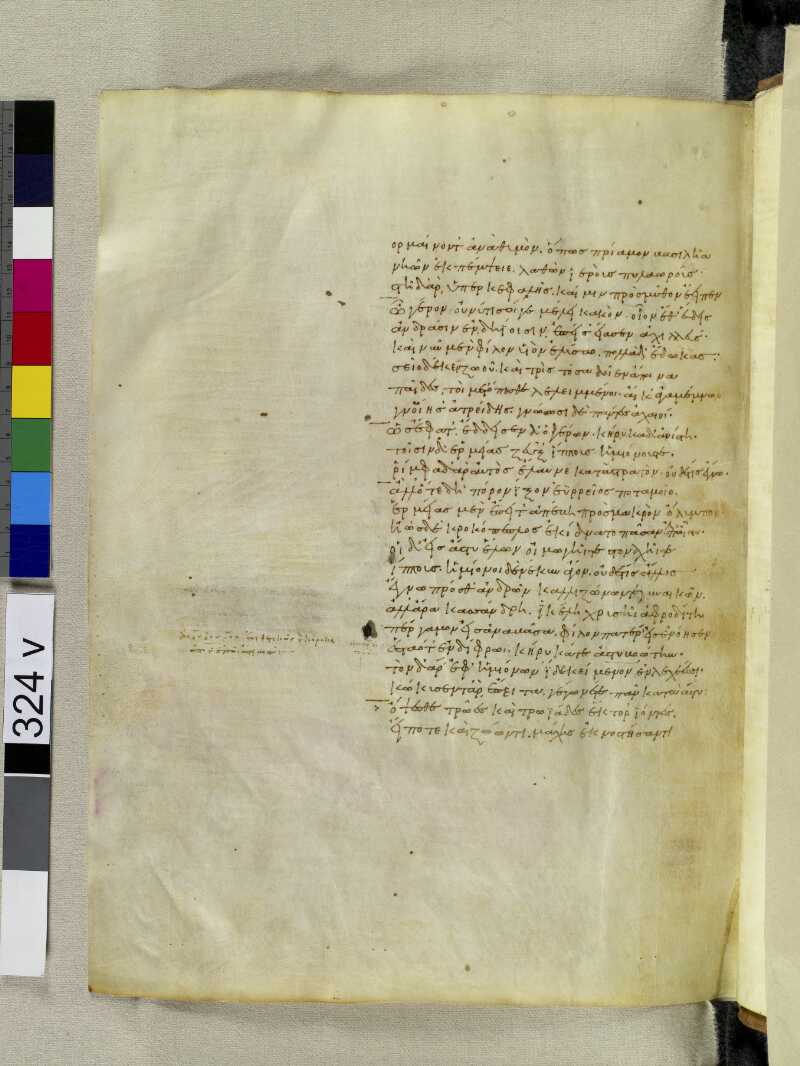 ὁρμαίνοντ' ἀνὰ θυμὸν. ὅπως πρίαμον βασιλῆα
νηῶν ἐκπέμψειε. λαθὼν ἱεροὺς πυλαωρούς·
στῆ δ' ἄρ' ὑπὲρ κεφαλῆς. καί μιν πρὸς μῦθον ἔειπεν
ὦ γέρον. οὔ νύ τι σοί γε μέλει κακὸν. οἷον ἔθ' εὕδεις
ἀνδράσιν ἐν δηίοισιν. ἐπεί σ' εἴασεν ἀχιλλεύς·
καὶ νῦν μὲν φίλον υἱὸν ἐλύσαο. πολλὰ δ' ἔδωκας·
σεῖο δέ κε ζωοῦ. καὶ τρὶς τόσα δοῖεν ἄποινα
παῖδες. τοὶ μετόπισθε λελειμμένοι. αἴ κ' ἀγαμέμνων
γνοίη σ' ἀτρείδης. γνώωσι δὲ πάντες ἀχαιοί.
ὣς ἔφατ'. ἔδδεισεν δ' ὁ γέρων. κήρυκα δ' ἀνίστη.
τοῖσιν δ' ἑρμείας ζεῦξ' ἵππους ἡμιόνους τε.
ῥίμφα δ' ἄρ' αὐτὸς ἔλαυνε κατὰ στρατόν. οὐδέ τις ἔγνω.
ἀλλ' ὅτε δὴ πόρον ἷξον ἐυρρεῖος ποταμοῖο.
ἑρμείας μὲν ἔπειτ' ἀπέβη πρὸς μακρὸν ὄλυμπον.
ἠὼς δὲ κροκόπεπλος ἐκίδνατο πᾶσαν ἐπ' αἶαν·
οἱ δ' εἰς ἄστυ ἔλων οἰμωγῇ τε στοναχῇ τε
ἵππους. ἡμίονοι δὲ νέκυν φέρον. οὐδέ τις ἄλλος
ἔγνω πρόσθ' ἀνδρῶν καλλιζώνων τε γυναικῶν.
ἀλλ' ἄρα κασσάνδρη. ἰκέλη χρυσῇ ἀφροδίτῃ
πέργαμον εἰσαναβᾶσα. φίλον πατέρ' εἰσενόησεν
ἑσταότ' ἐν δίφρωι. κήρυκά τε ἀστυβοώτην.
τὸν δ' ἄρ' ἐφ' ἡμιόνων ἴδε κείμενον ἐν λεχέεσσι.
κώκυσέν τ' ἄρ' ἔπειτα. γέγωνέ τε πᾶν κατὰ ἄστυ·
ὄψεσθε τρῶες καὶ τρωιάδες ἕκτορ' ἰόντες.
εἴ ποτε καὶ ζώοντι. μάχης ἐκ νοστήσαντι
324 v